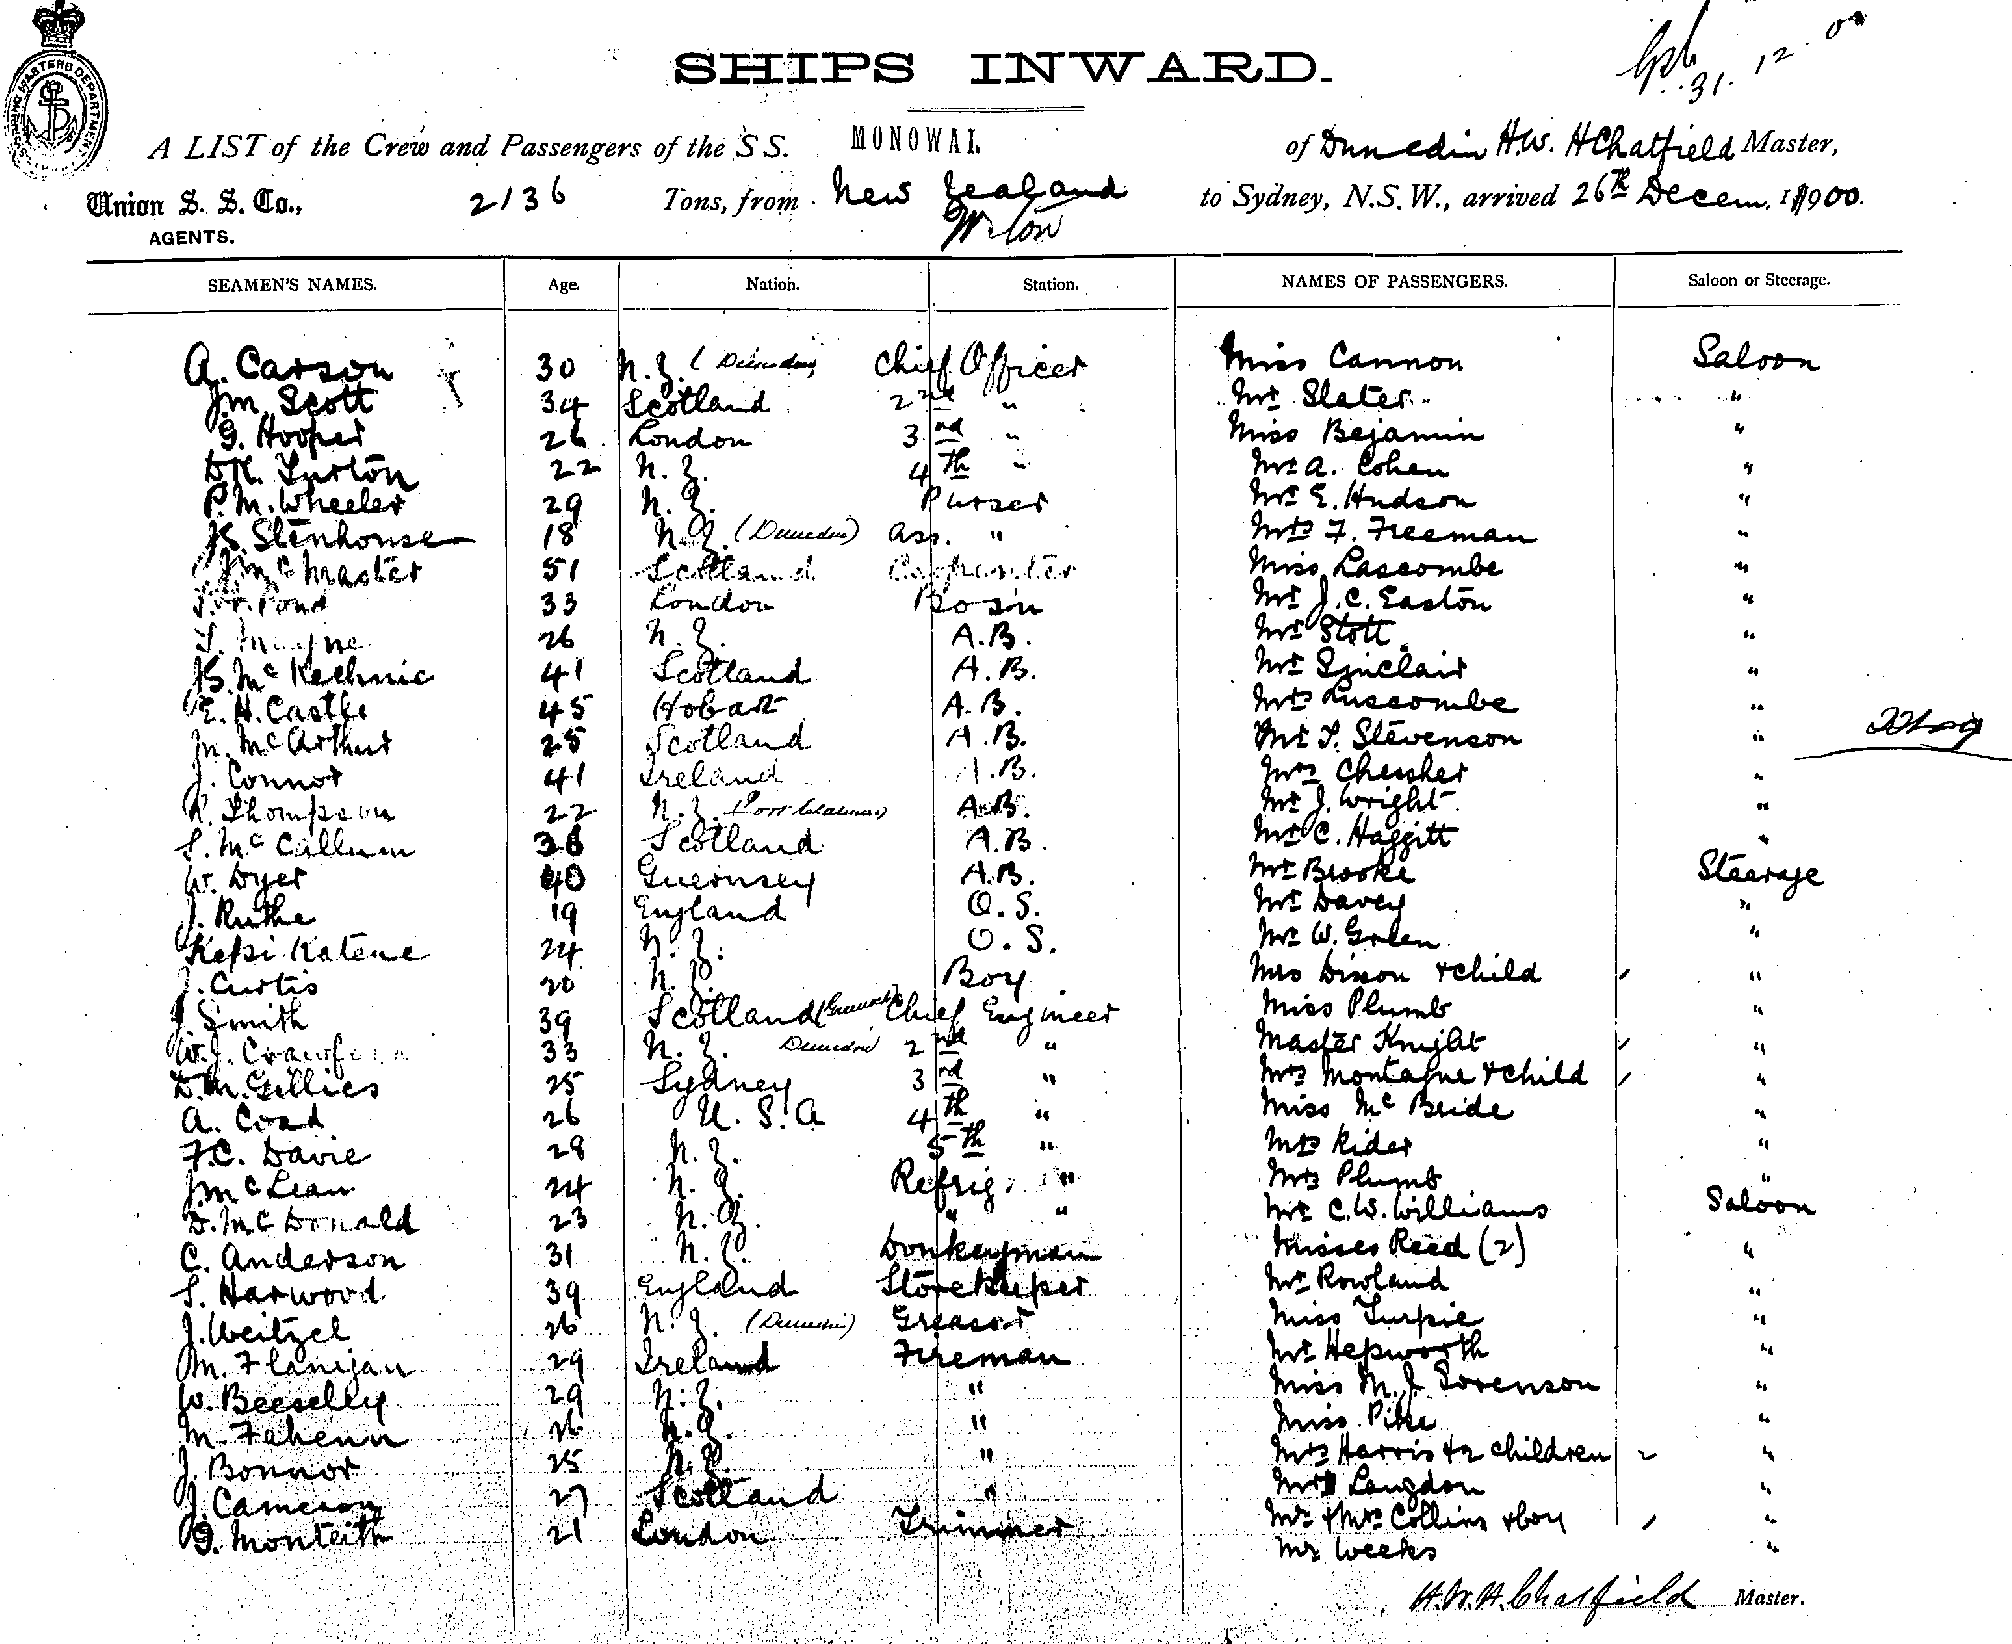 31.12.00
SHIPS INWARD.
A LIST of the Crew and Passengers of the S S. MONOWAI. of Dunedin H.W. HChatfield Master,
Union S. S. Co., 2136 Tons, from New Zealand to Sydney, N.S.W., arrived 26th Decem. 1900.
AGENTS.
SEAMEN'S NAMES. Age. Nation. Station. NAMES OF PASSENGERS. Saloon or Steerage.
A. Carson 30 N.Z. (Dunedin) Chief Officer Miss Cannon Saloon
Jm Scott 34 Scotland 2nd " Mr Slater "
G. Hooper 26 London 3rd " Miss Bejamin "
Turton 22 N.Z. 4th " Mr A. Cohen "
P.M. Wheeler 29 N.Z. Purser Mr E. Hudson "
Stenhouse 18 N.Z. (Dunedin) Ass. " Mrs F. Freeman "
McMaster 51 Scotland Carpenter Miss Lascombe "
Pond 33 London Bosn Mr J.C. Easton "
26 N.Z. A.B. Mr Stott "
McKechnie 41 Scotland A.B. Mr Sinclair "
E.H. Castle 45 Hobart A.B. Mrs Luscombe "
McArthur 25 Scotland A.B. Mr T. Stevenson "
J. Connor 41 Ireland A.B. Mrs "
R. Thompson 22 N.Z. (Port Chalmers) A.B. Mr J. Wright "
S. McCallum 36 Scotland A.B. Mr C. Haggitt "
W. Dyer 40 Guernsey A.B. Mr Brooke Steerage
J. Ruthe 19 England O.S. Mr Davey "
Kepi Katene 24 N.Z. O.S. Mr W. Green "
J. Curtis 20 N.Z. Boy Mrs Dixon & child "
J. Smith 39 Scotland (Greenock) Chief Engineer Miss Plumb "
W.J. 33 N.Z. Dunedin 2nd " Master Knight "
D.M. Gillies 25 Sydney 3rd " Mrs Montague & child "
A. Coad 26 U.S.A 4th " Miss McBride "
F.C. Davie 28 N.Z. 5th " Mrs Rider "
J McLean 24 N.Z. Refrig " Mrs Plumb "
D. McDonald 23 N.Z. " " Mr C.W. Williams Saloon
C. Anderson 31 N.Z. Donkeyman Misses Reed (2) "
S. Harwood 39 England Storekeeper Mr Rowland "
J. Weitzel 26 N.Z. (Dunedin) Greaser Miss Turpie "
M. Flanigan 29 Ireland Fireman Mr Hepworth "
W. Beeselly 29 N.Z. " Miss M.J. Sorenson "
M. Fahenn 26 N.Z. " Miss Pike "
J. Bonnor 25 N.Z. " Mrs Harris & 2 children "
J. Cameron 27 Scotland " Langdon "
G. Monteith 21 London Trimmer Mr & Mrs Collins & boy "
Mr Weeks "
H.W.H. Chatfield Master.